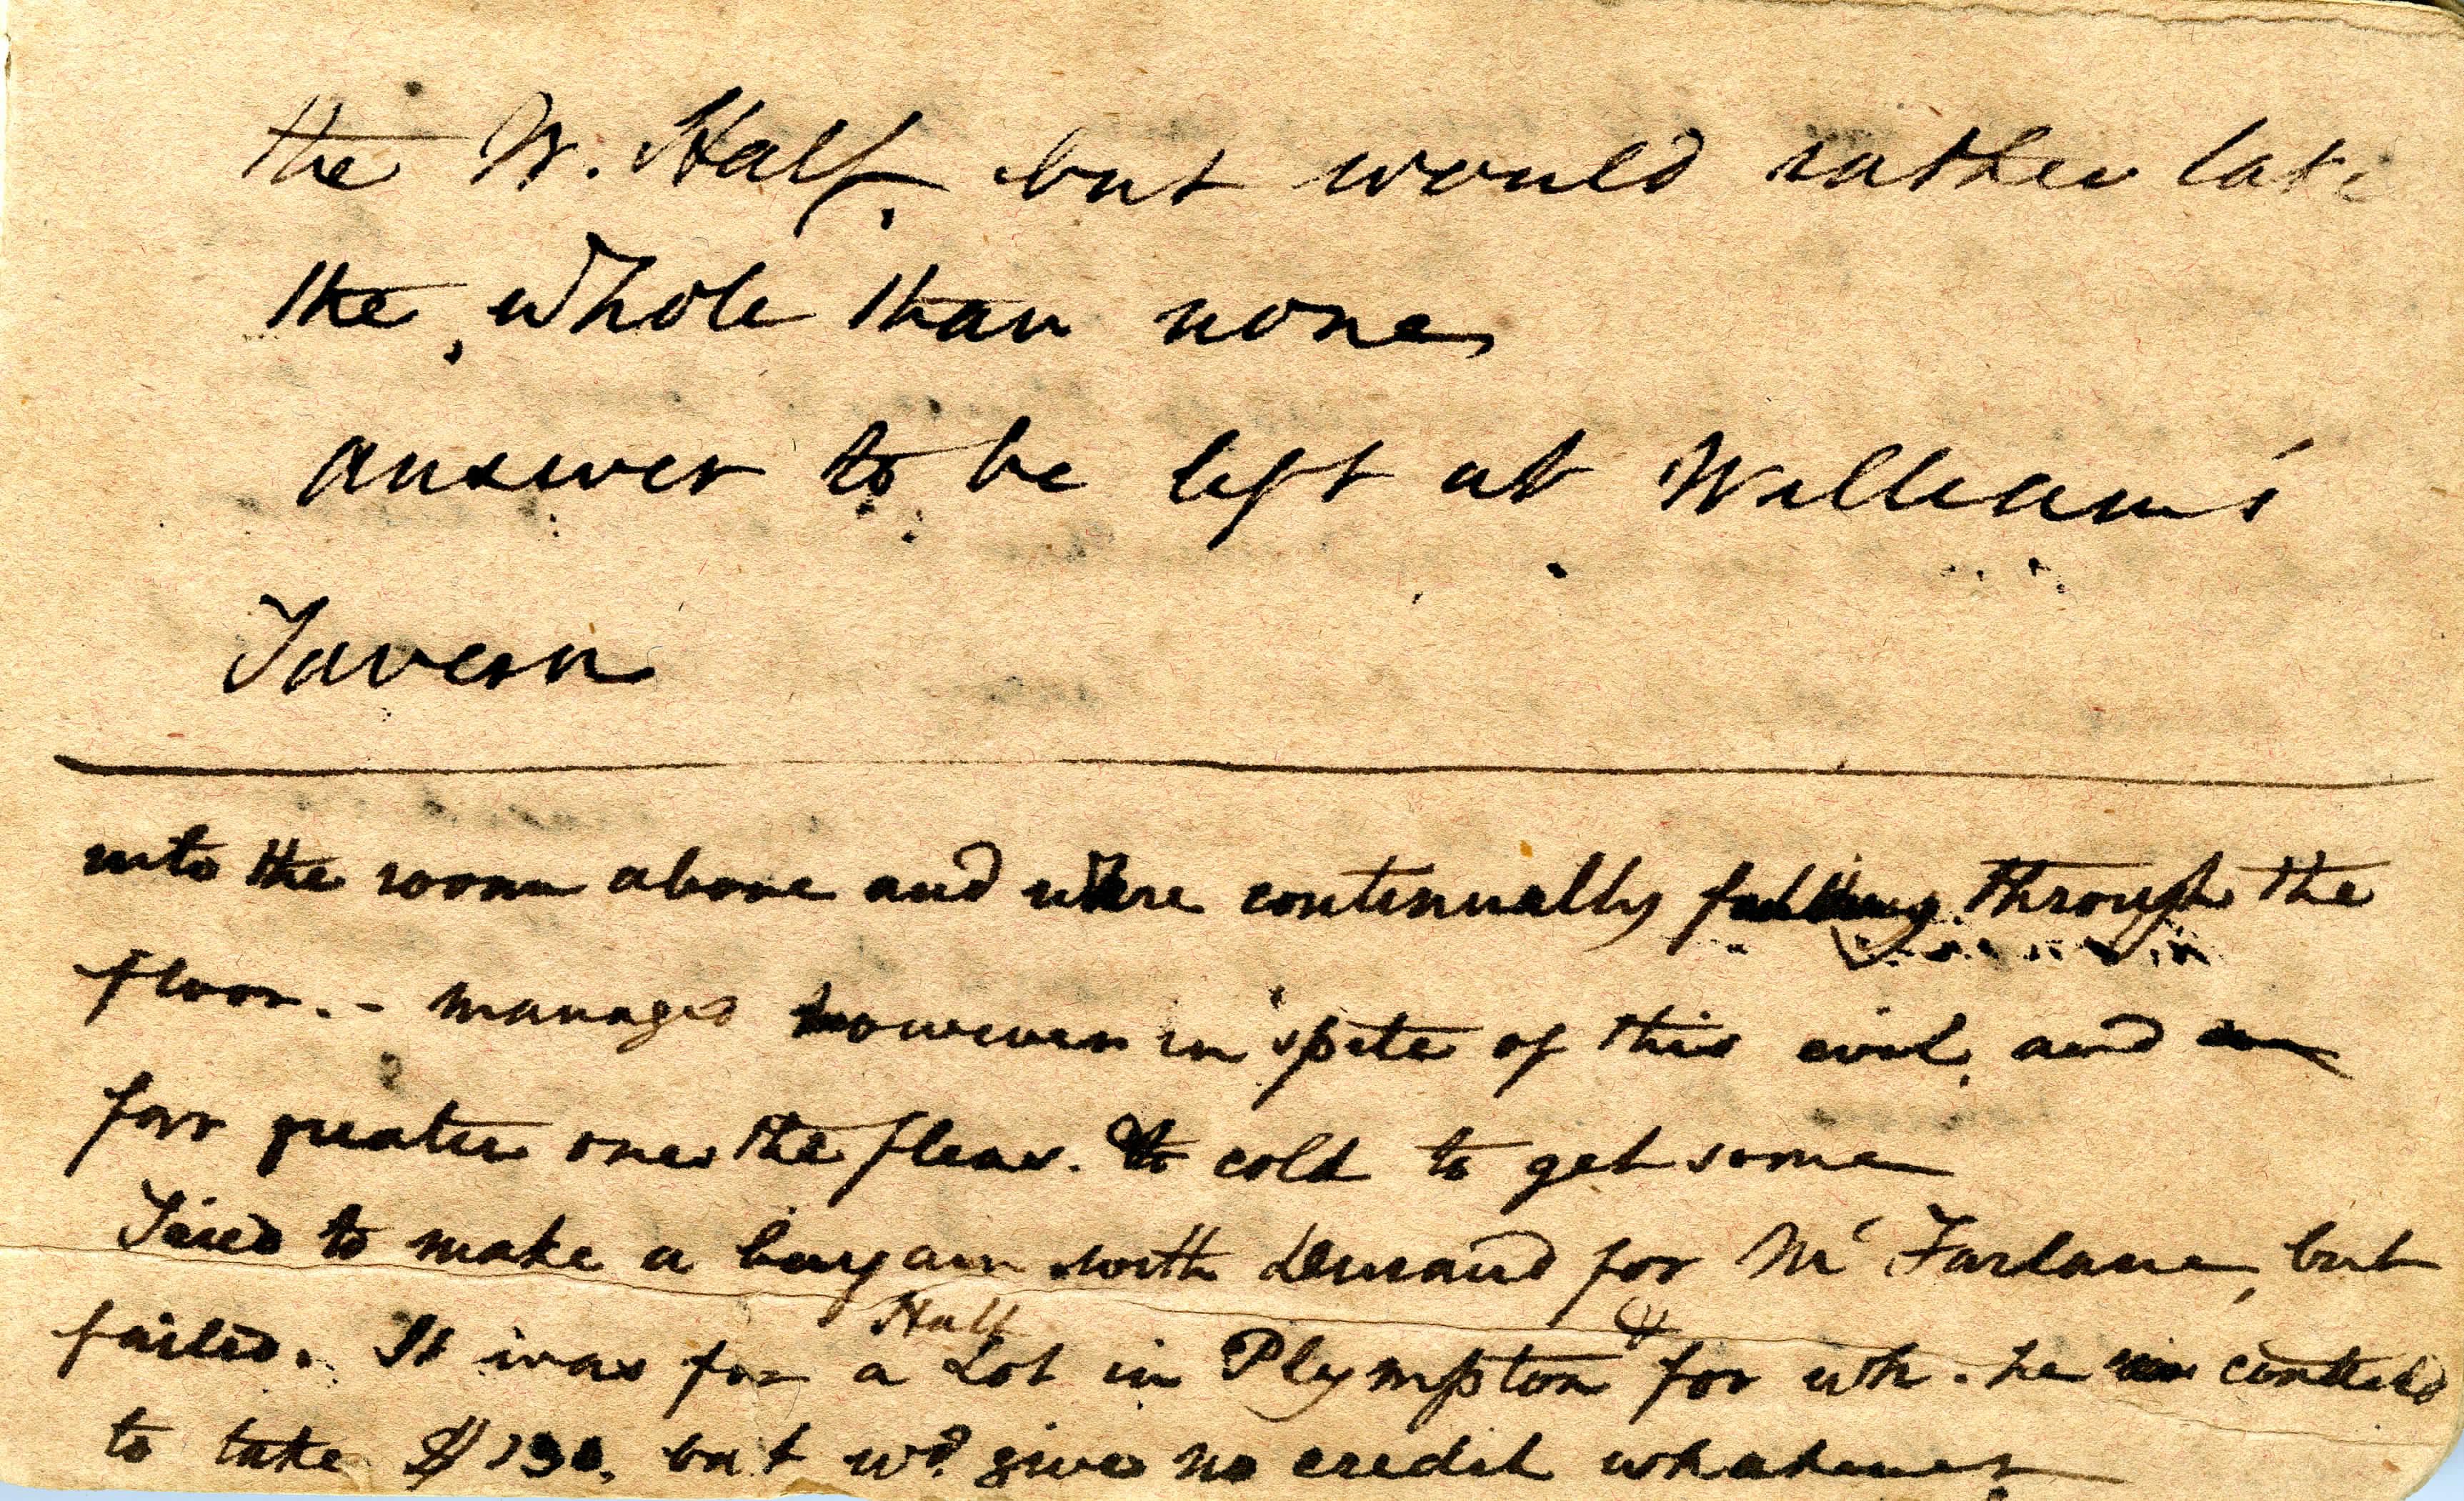 the W. Half, but would rather take
the whole than none,
answer to be left at William's
Tavern
into the room above and where continually falling through the
floor. - managed however in spite of this evil, and
far greater ones the fleas. to cold to get some
Tried to make a bargain with Demand for Mc Farlane, but
failed. It was for a Half Lot in Plympton for wh. he
to take $130. but wd. give no credit whatever